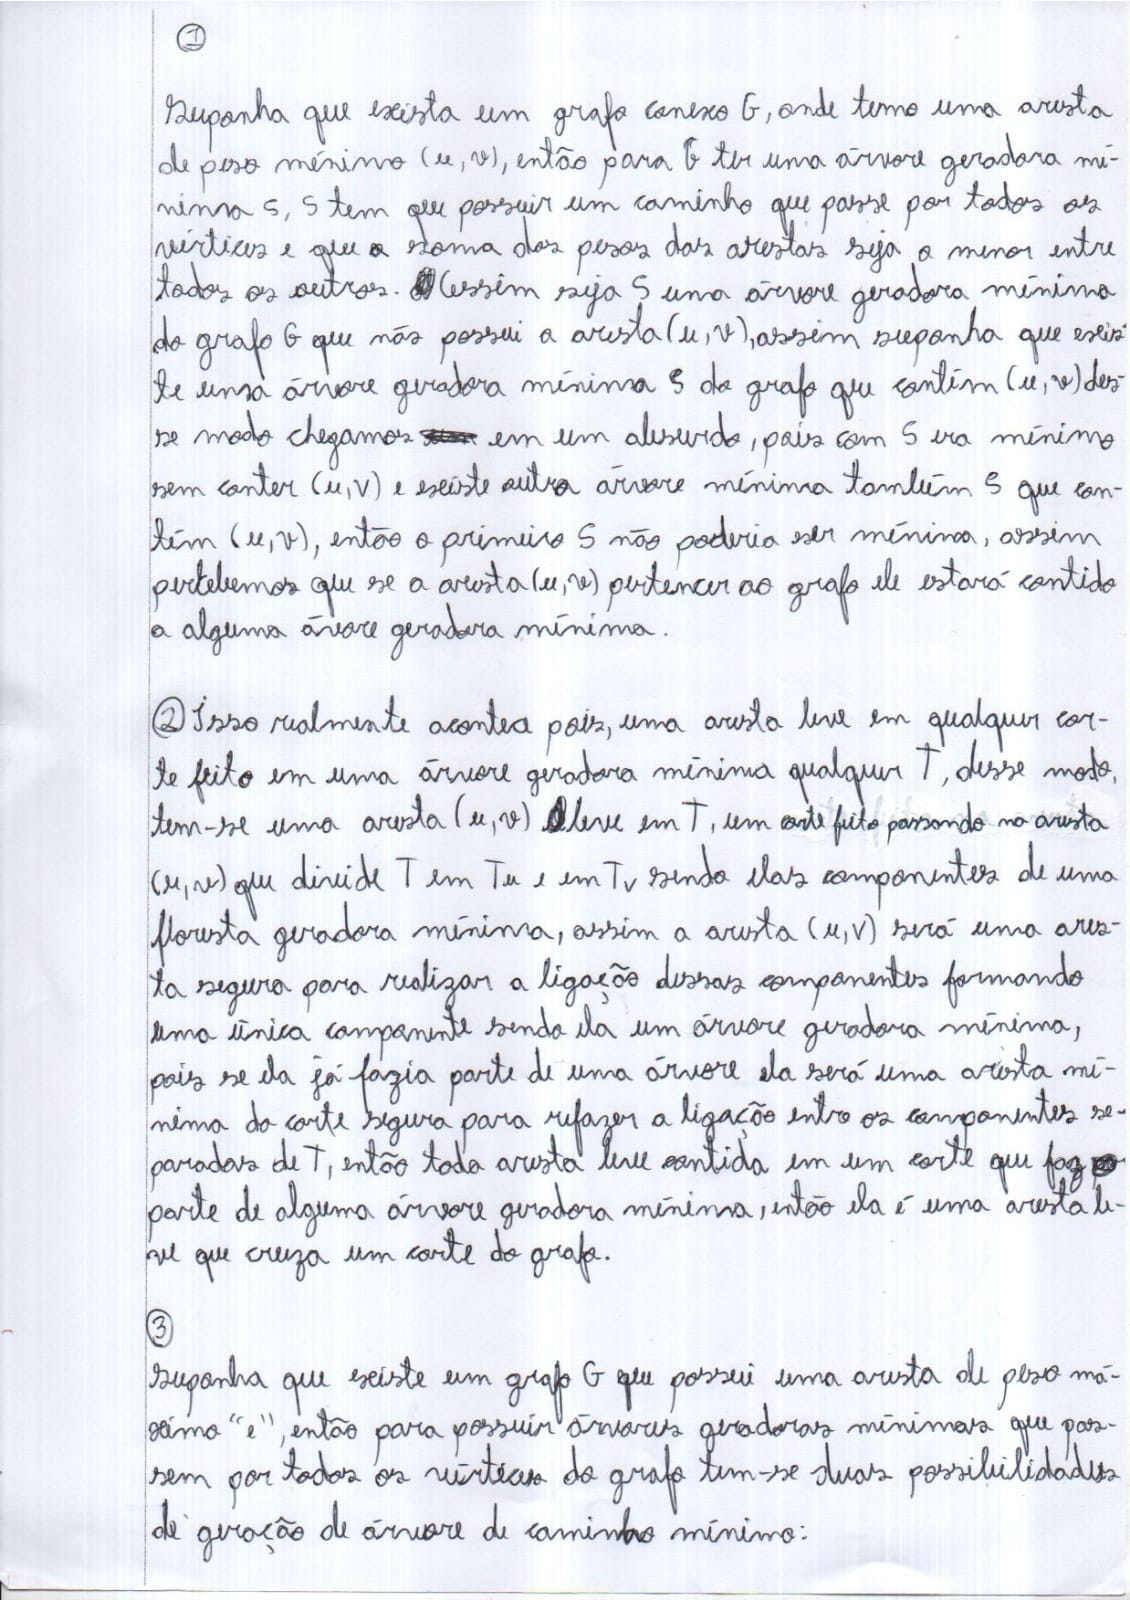 1
Suponha que exista um grafo conexo G, onde temo uma aresta
de peso mínimo (u, v), então para G ter uma árvore geradora mí-
nima S, S tem que possuir um caminho que passe por todos os
vértices e que a soma dos pesos das arestas seja a menor entre
todos os outros. Assim seja S uma árvore geradora mínima
do grafo G que não possui a aresta (u, v), assim suponha que exis-
te uma árvore geradora mínima S do grafo que contém (u, v) des-
se modo chegamos em um absurdo, pois com S era mínimo
sem conter (u, v) e existe outra árvore mínima também S que con-
têm (u, v), então o primeiro S não poderia ser mínima, assim
percebemos que se a aresta (u, v) pertencer ao grafo ele estará contido
a alguma árvore geradora mínima.
2 Isso realmente acontece pois, uma aresta leve em qualquer cor-
te feito em uma árvore geradora mínima qualquer T, desse modo,
tem-se uma aresta (u, v) leve em T, um corte feito passando na aresta
(u, v) que divide T em Tu e em Tv sendo elas componentes de uma
floresta geradora mínima, assim a aresta (u, v) será uma ares-
ta segura para realizar a ligação dessas componentes formando
uma única componente sendo ela um árvore geradora mínima,
pois se ela já fazia parte de uma árvore ela será uma aresta mí-
nima do corte segura para refazer a ligação entre os componentes se-
paradas de T, então toda aresta leve contida em um corte que faz
parte de alguma árvore geradora mínima, então ela é uma aresta le-
ve que cruza um corte do grafo.
3
Suponha que existe um grafo G que possui uma aresta de peso má-
ximo "e", então para possuir árvores geradoras mínimas que pas-
sem por todos os vértices do grafo tem-se duas possibilidades
de geração de árvore de caminho mínimo: